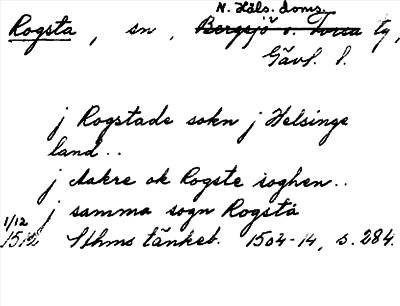 N. Häls. doms.
Rogsta, sn, Bergsjö o. Torra tg,
Gävl. l.
j Rogstade sokn j Helsinge
land..
j Aakre ok Rogste soghen..
j samma sogn Rogsta
1/12
1512 Sthms tänkeb. 1504-14, s. 284.